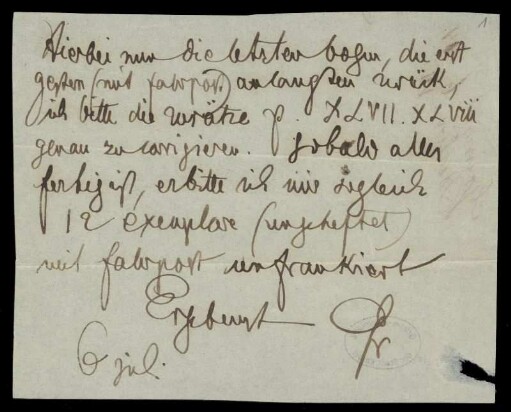 1
Hierbei nur die letzten bogen, die erst
gestern (mit fahrpost) anlangten zurück,
ich bitte die zusätze p. XLVII. XLVIII
genau zu corrigieren. sobald alles
fertig ist, erbitte ich mir sogleich
12 exemplare (ungeheftet)
mit fahrpost unfrankiert
Ergebenst Gr
6 jul.